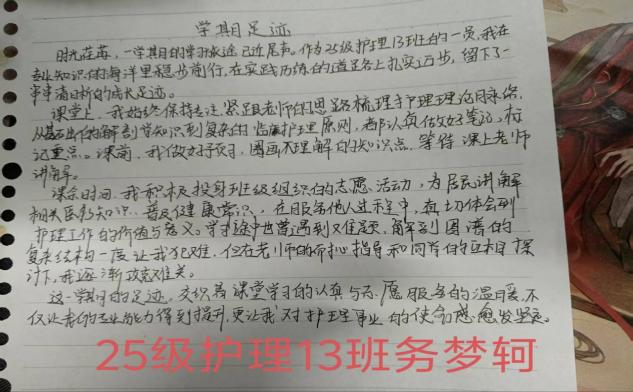 学期足迹
时光荏苒，一学期的学习旅途已近尾声。作为25级护理13班的一员，我在
专业知识的海洋里稳步前行，在实践历练的道路上扎实迈步，留下了一
串串清晰的成长足迹。
课堂上，我始终保持专注，紧跟老师的思路梳理护理理论用脉络，
从基础的解剖学知识到复杂的临床护理原则，都认真做好笔记，标
记重点。课前，我做好预习，圈画不理解的知识点，等待课上老师
讲解。
课余时间，我积极投身班级组织的志愿活动，为居民讲解
相关医务知识、普及健康常识，在服务他人过程中，真切体会到
护理工作的价值与意义。学习途中也曾遇到过难题，解剖图谱的
复杂结构一度让我犯难，但在老师的耐心指导和同学的互相探
讨下，我逐渐攻克难关。
这一学期的足迹，交织着课堂学习的认真与志愿服务的温暖，不
仅让我的专业能力得到提升，更让我对护理事业的使命感愈发坚定。
25级护理13班务梦轲